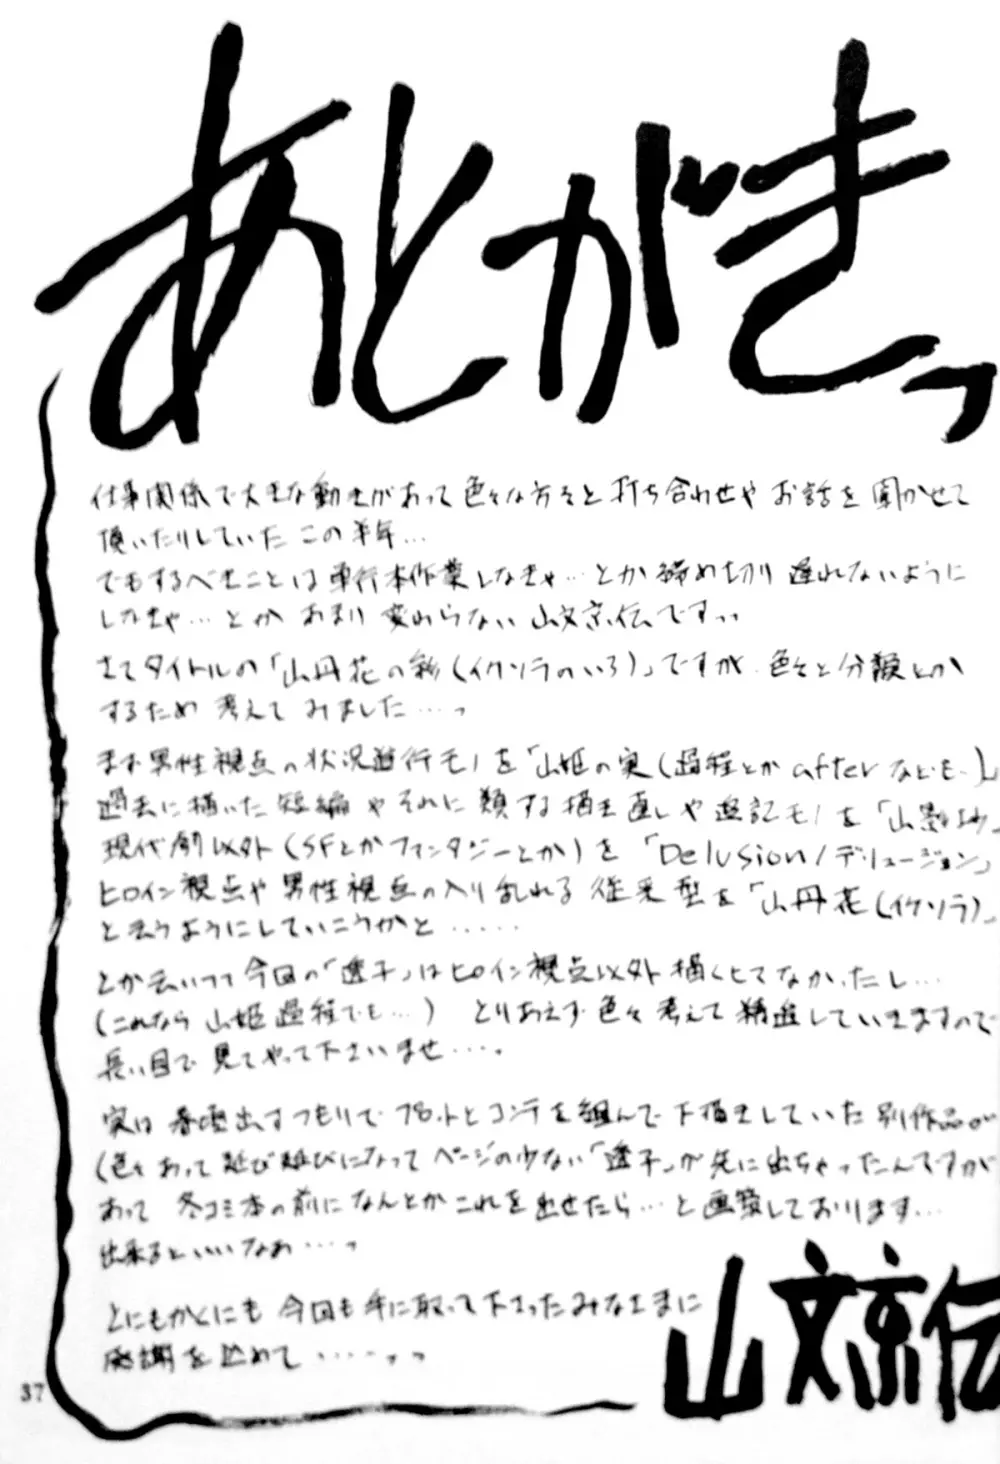 あとがきっ
仕事関係で大きな動きがあって色々な方々と打ち合わせや お話を 聞かせて
頂いたりしていた この半年…
でもするべきことは 単行本作業しなきゃ…とか 締め切り 遅れないように
しなきゃ…とか あまり 変わらない 山文京伝ですっっ
さてタイトルの「山丹花の彩(イケソラのいろ)」ですが 色々と分類とか
するため 考えて みました…っ
まず男性視点の状況進行モノを「山姫の実(過程とかafterなども)」
過去に描いた 短編 や それに 類する 描き直しや 追記モノを「山
現代劇以外(SFとかファンタジーとか)を 「Delusion/デリュージョン」
ヒロイン視点や 男性視点の入り乱れる 従来型を「山丹花(イケソラ)」
と云うようにしていこうかと‥‥‥
とか云いつつ 今回の「透子」はヒロイン視点以外 描くヒマなかったし…
(これなら 山姫過程でも…) とりあえず 色々 考えて 精進していきますので
長い目で 見てやって下さいませ…。
実は 春 出すつもりで プロットとコンテを 組んで 下描きしていた 別作品が
(色々あって 延び延びになって ページの少ない「透子」が 先に 出ちゃったんですが
あって 冬コミ本の前に なんとか これを 出せたら…と画策しております…
出来るといいなぁ…っ
とにもかくにも 今回も 手に取って下さったみなさまに
感謝を 込めて……っっ
山文京伝
37